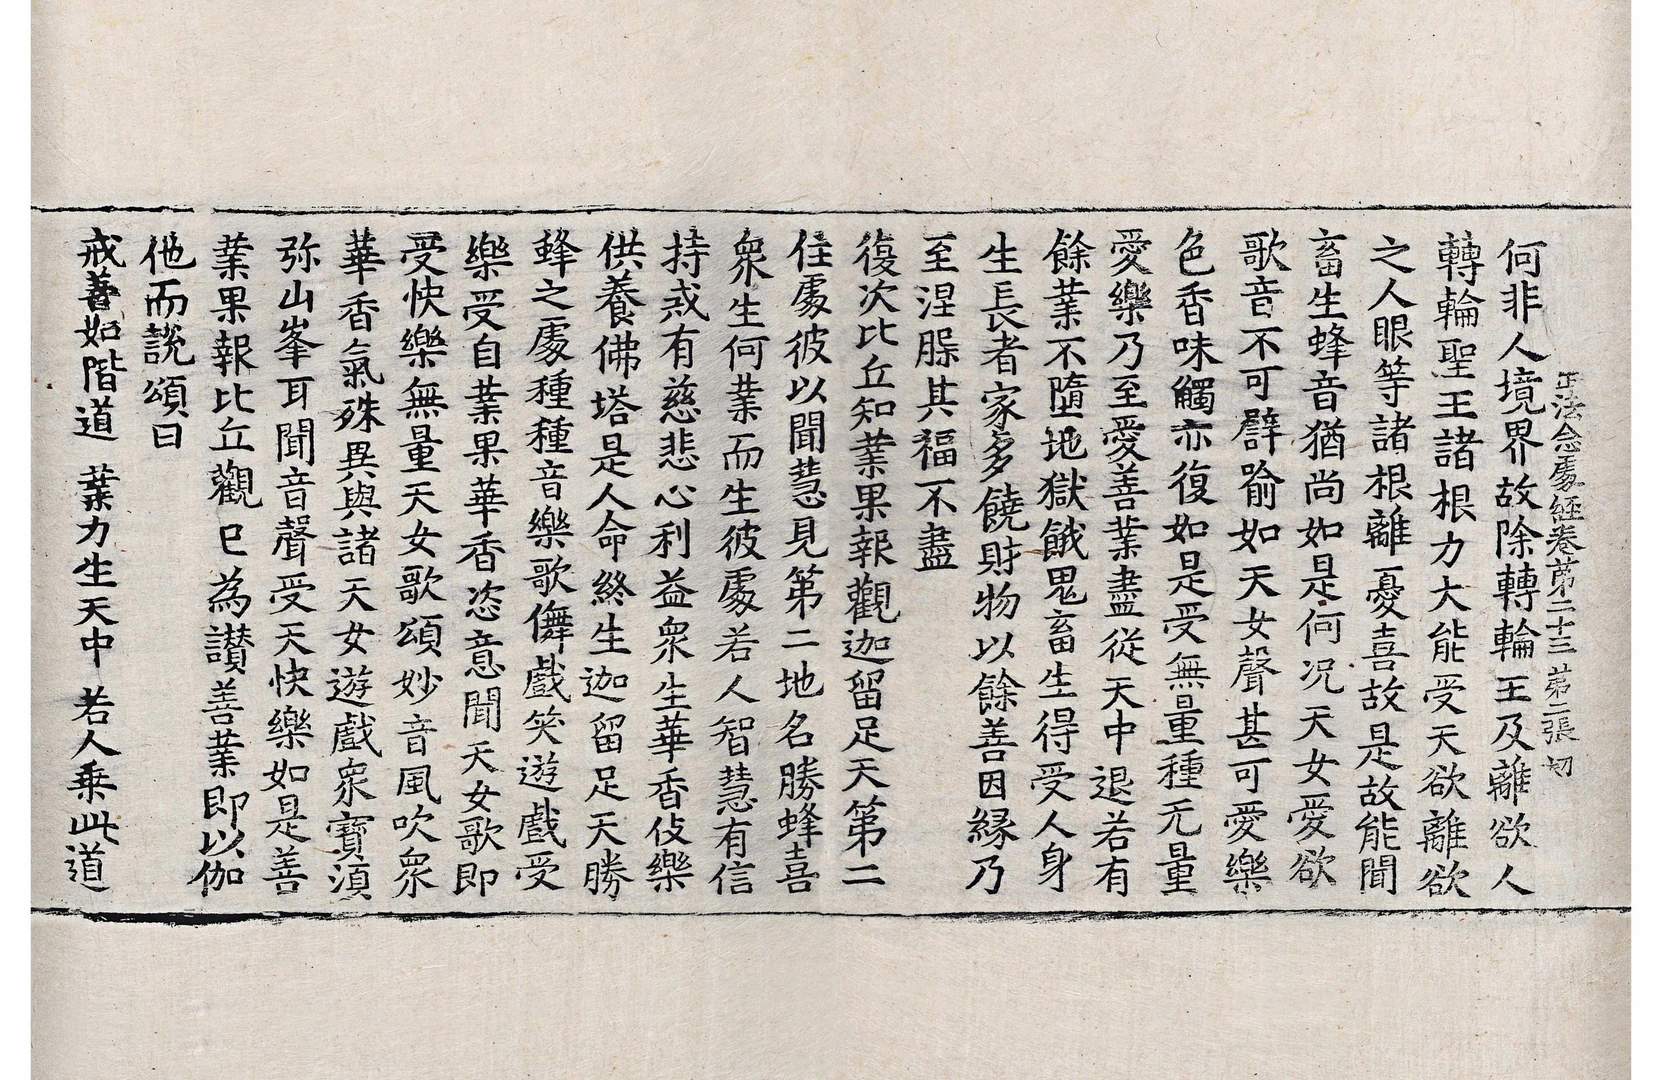 正法念處經卷第二十三 第二張 切
何非人境界故除轉輪王及離欲人
轉輪聖王諸根力大能受天欲離欲
之人眼等諸根離憂喜故是故能聞
畜生蜂音猶尚如是何况天女愛欲
歌音不可譬喻如天女聲甚可愛樂
色香味觸亦復如是受無量種无量
愛樂乃至愛善業盡從天中退若有
餘業不墮地獄餓鬼畜生得受人身
生長者家多饒財物以餘善因緣乃
至涅槃其福不盡
復次比丘知業果報觀迦留足天第二
住處彼以聞慧見第二地名勝蜂喜
衆生何業而生彼處若人智慧有信
持戒有慈悲心利益衆生華香伎樂
供養佛塔是人命終生迦留足天勝
蜂之處種種音樂歌儛戲笑遊戲受
樂受自業果華香恣意聞天女歌即
受快樂無量天女歌頌妙音風吹衆
華香氣殊異與諸天女遊戲衆寶湏
弥山峯耳聞音聲受天快樂如是善
業果報比丘觀已為讃善業即以伽
他而說頌曰
戒善如階道 業力生天中 若人乗此道